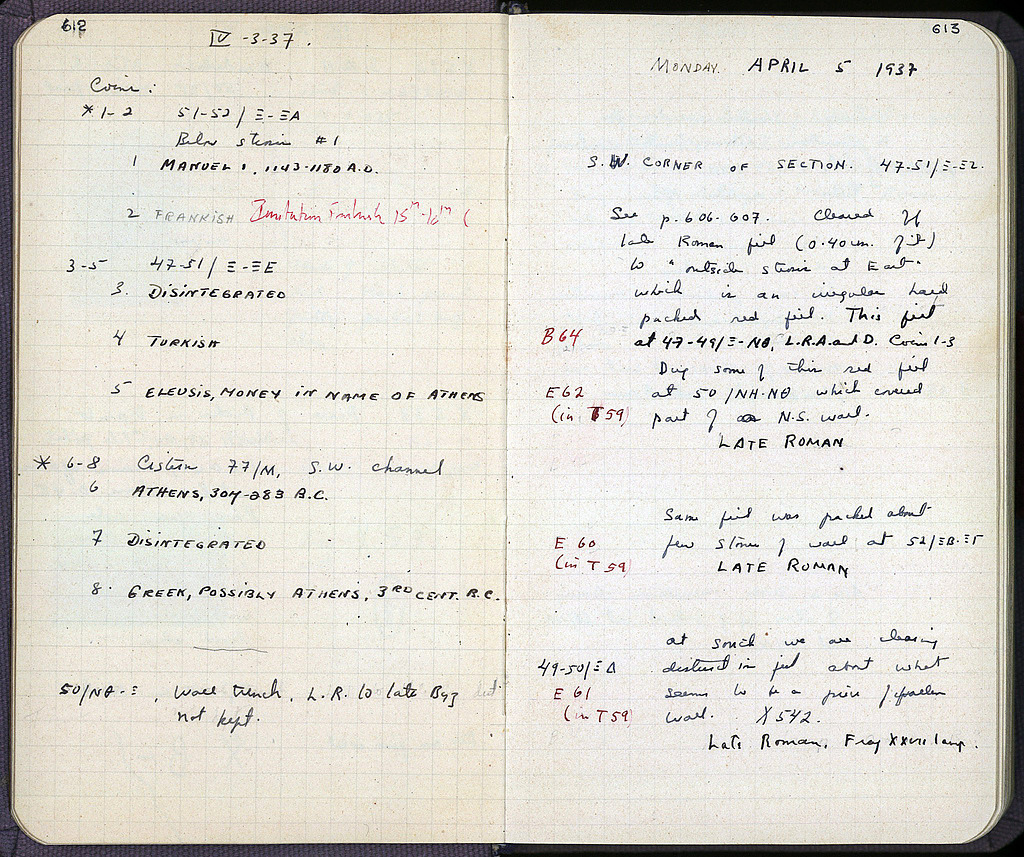 612
IV -3-37.
Coins:
*1-2 51-52/Ξ-ΞA
Below strosis #1
1 MANUEL I, 1143-1180 A.D.
2 FRANKISH Imitation Frankish 15th-16th (
3-5 47-51/Ξ-ΞE
3. DISINTEGRATED
4 TURKISH
5 ELEUSIS, MONEY IN NAME OF ATHENS
* 6-8 Cistern 77/M, S.W. channel
6 ATHENS, 307-283 B.C.
7 DISINTEGRATED
8. GREEK, POSSIBLY ATHENS, 3RD CENT. B.C.
50/NΘ-Ξ, Wall trench. L.R. to late Byz
not kept.
613
MONDAY. APRIL 5 1937
S.W. CORNER OF SECTION. 47-51/Ξ-ΞZ.
See p. 606-607. Cleared off
late Roman fill (0.40 cm. fill)
to outside strosis at East.
which is an irregular hard
packed red fill. This fill
B 64 at 47-49/Ξ-NΘ, L.R.A. and D. Coins 1-3
Dug some of this red fill
E 62 at 50/NH-NΘ which covered
(in T 59) part of N.S. wall.
LATE ROMAN
Same fill was packed about
E 60 few stones of wall at 52/ΞB-ΞΓ
(in T 59) LATE ROMAN
At south we are clearing
49-50/ΞΔ disturbed in fill about what
E 61 seems to be a piece of
(in T 59) wall. X 542.
Late Roman, Frag XXVII lamp.